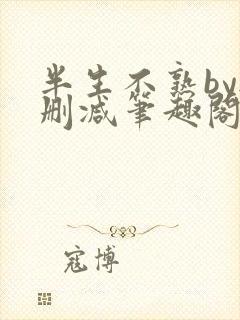 半生不熟by
删减笔趣阁
寇博